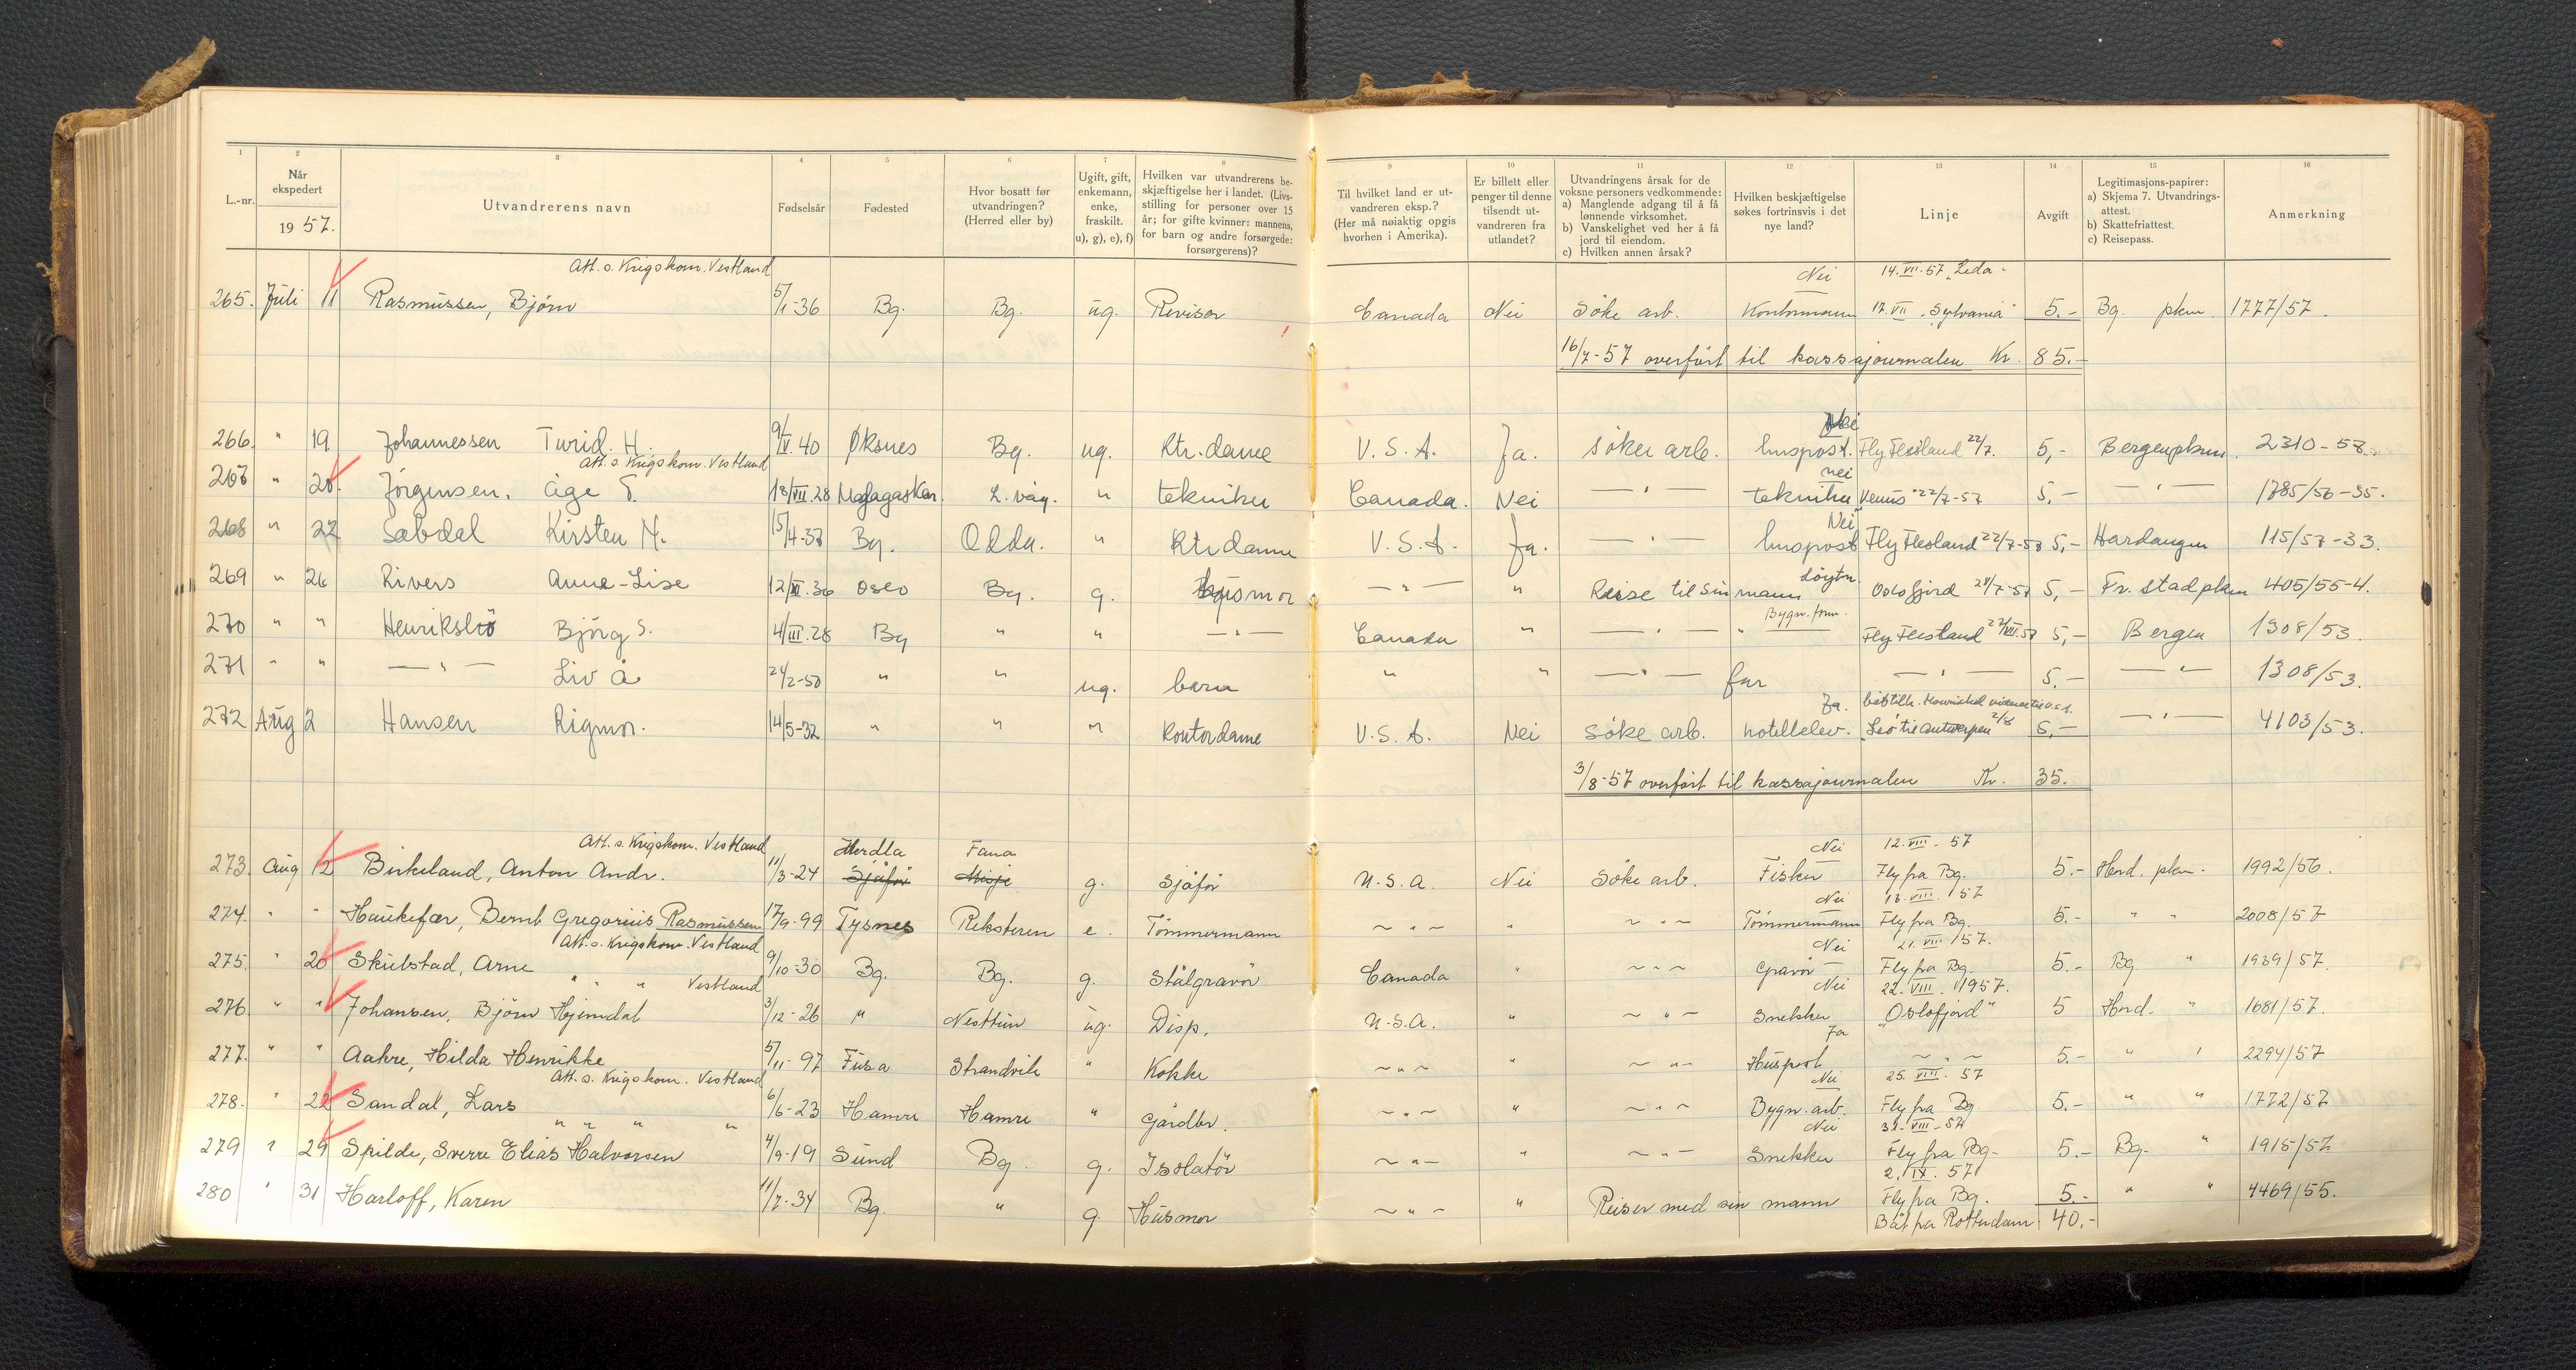 1 2 3 4 5 6 7 8 9 10 11 12 13 14 15 16
L.-nr. Når ekspedert 1957. Utvandrerens navn Fødselsår Fødested Hvor bosatt før utvandringen? (Herred eller by) Ugift, gift, enkemann, enke, fraskilt. u), g), e), f) Hvilken var utvandrerens beskjæftigelse her i landet. (Livsstilling for personer over 15 år; for gifte kvinner: mannens, for barn og andre forsørgede: forsørgerens)? Til hvilket land er utvandreren eksp.? (Her må nøiaktig opgis hvorhen i Amerika). Er billett eller penger til denne tilsendt utvandreren fra utlandet? Utvandringens årsak for de voksne personers vedkommende: a) Manglende adgang til å få lønnende virksomhet. b) Vanskelighet ved her å få jord til eiendom. c) Hvilken annen årsak? Hvilken beskjæftigelse søkes fortrinsvis i det nye land? Linje Avgift Legitimasjons-papirer: a) Skjema 7. Utvandringsattest. b) Skattefriattest. c) Reisepass. Anmerkning
Att. s. Krigskom. Vestland Nei 14.VII.57 "Leda"
265. Juli 11 Rasmussen, Bjørn 5/1-36 Bg. Bg. ug. Revisor Canada Nei Søke arb. Kontormann 17.VII "Sylvania" 5.- Bg. pkm. 1777/57.
16/7-57 overført til kassajournalen Kr. 85.-
266. " 19 Johannessen Turid. H. 9/V.40 Øksnes Bg. ug. Ktr.dame U.S.A. Ja. søker arb. huspost. Fly Flesland 22/7. 5,- Bergenpkm. 2310-53.
Att. s. Krigskom. Vestland nei
267 " 20. Jørgensen. Åge T. 18/VII.28 Madagaskar. L.våg. " tekniker Canada. Nei —"— tekniker Venus 22/7-57 5,- —"— 1785/56-55.
Nei
268 " 22 Sæbdal Kirsten M. 15/4-37 Bg. Odda. " Ktr dame U.S.A. Ja. —"— huspost Fly Flesland 22/7-57 5,- Hardanger 115/57-33.
Løytn.
269 " 26 Rivers Anne-Lise 12/XI.36 Oslo Bg. g. husmor —"— " Reise til sin mann Oslofjord 28/7-57 5,- Fr.stad pkm 405/55-4.
Bygn. form.
270 " " Henriksbø Bjørg S. 4/III.28 Bg " " —"— Canada " —"— " Fly Flesland 27/VII.57 5,- Bergen 1308/53.
271 " " —"— Liv Å 24/2-50 " " ug. barn " " —"— far —"— 5.- —"— 1308/53.
Ja.
272 Aug 2 Hansen Rigmor. 14/5-32 " " " Kontordame U.S.A. Nei Søke arb. hotellelev. "Leo" til Antwerpen 2/8 5,- —"— 4103/53.
3/8-57 overført til kassajournalen Kr. 35.-
Att. s. Krigskom. Vestland Herdla Fana Nei 12.VIII.57
273. Aug 12 Birkeland, Anton Andr. 11/3-24 Sjåfør Misje g. Sjåfør U.S.A. Nei Søke arb. Fisker Fly fra Bg. 5.- Hord. pkm. 1992/56.
Nei 13.VIII.57
274. " " Haukefær, Bernt Gregorius Rasmussen 17/9-99 Tysnes Reksteren e. Tømmermann ~"~ " ~"~ Tømmermann Fly fra Bg. 5.- " " 2008/57
Att. s. Krigskom. Vestland Nei 21.VIII.57.
275. " 20 Skulstad, Arne 9/10-30 Bg. Bg. g. Stålgravør Canada " ~"~ Gravør Fly fra Bg. 5.- Bg " 1939/57.
" " " Vestland Nei 22.VIII.1957.
276. " " Johansen, Bjørn Hjemdal 3/12-26 " Nesttun ug. Disp. U.S.A. " ~"~ Snekker "Oslofjord" 5 Hord. " 1681/57.
Ja
277. " " Aakre, Hilda Henrikke 5/11-97 Fusa Strandvik " Kokke ~"~ " ~"~ Huspost ~"~ 5.- " " 2294/57
Att. s. Krigskom. Vestland Nei 25.VIII.57
278. " 22 Sandal, Lars 6/6-23 Hamre Hamre " Gårdbr. ~"~ " ~"~ Bygn. arb. Fly fra Bg. 5.- " " 1772/57
" " " " Nei 31.VIII-57
279 " 29 Spilde, Sverre Elias Halvorsen 4/9-19 Sund Bg. g. Isolatør ~"~ " ~"~ Snekker Fly fra Bg. 5.- Bg. " 1915/57
2.IX.57
280 " 31 Harloff, Karen 11/7-34 Bg. " g. Husmor ~"~ " Reiser med sin mann Fly fra Bg. 5.- " " 4469/55.
Båt fra Rotterdam 40.-